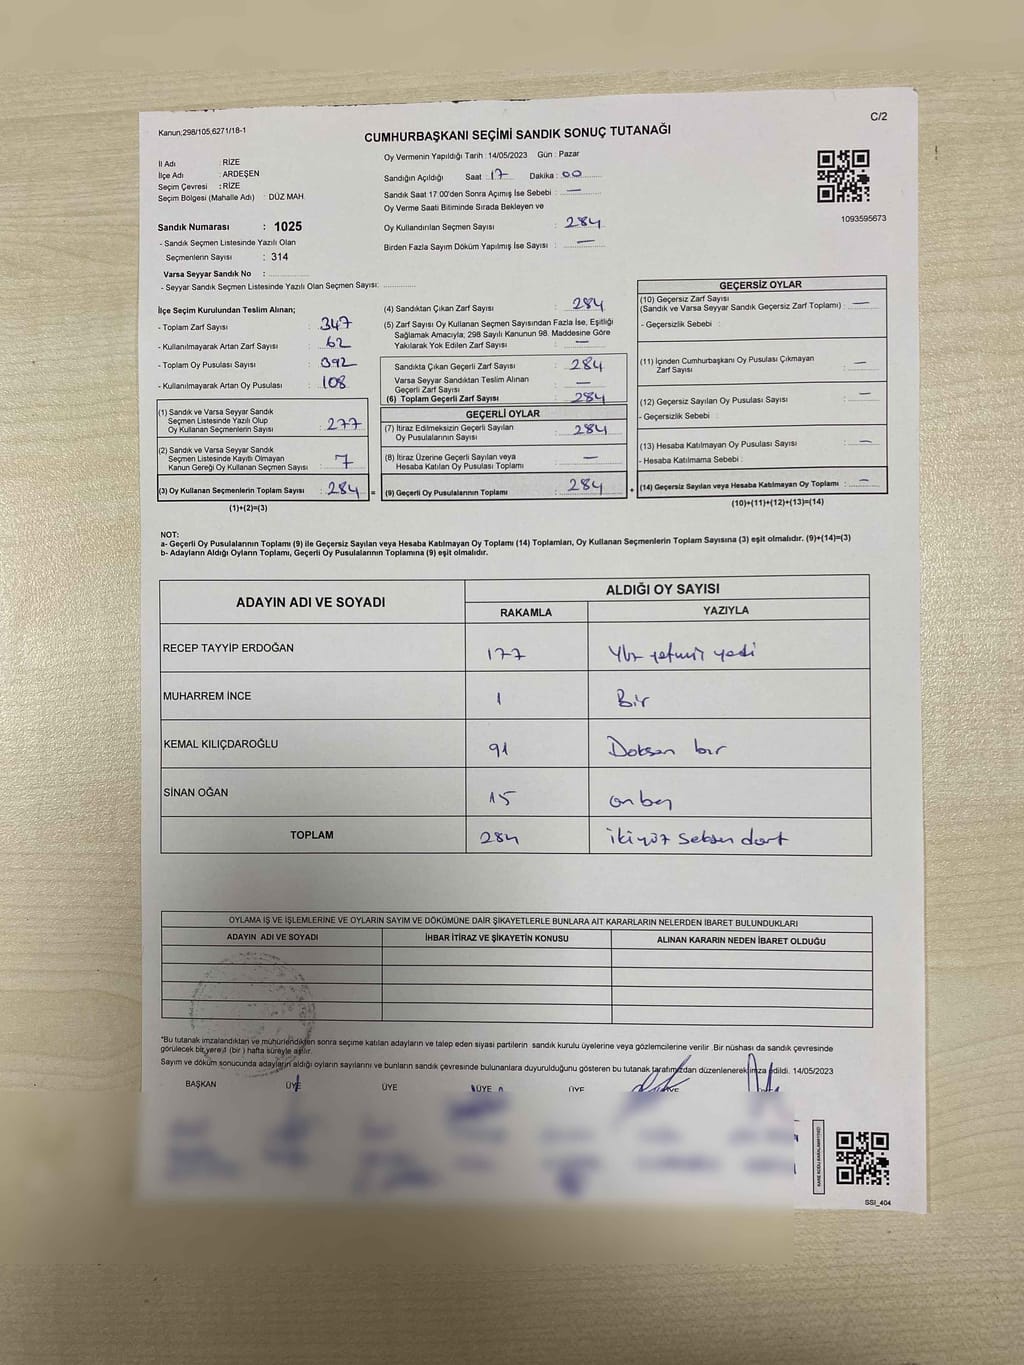 Kanun;298/105,6271/18-1
C/2
CUMHURBAŞKANI SEÇİMİ SANDIK SONUÇ TUTANAĞI
İl Adı : RİZE
İlçe Adı : ARDEŞEN
Seçim Çevresi : RİZE
Seçim Bölgesi (Mahalle Adı) : DÜZ MAH.
Sandık Numarası : 1025
- Sandık Seçmen Listesinde Yazılı Olan
Seçmenlerin Sayısı : 314
Varsa Seyyar Sandık No :
- Seyyar Sandık Seçmen Listesinde Yazılı Olan Seçmen Sayısı:
Oy Vermenin Yapıldığı Tarih : 14/05/2023 Gün : Pazar
Sandığın Açıldığı Saat : 17 Dakika : 00
Sandık Saat 17:00'den Sonra Açımış İse Sebebi : —
Oy Verme Saati Bitiminde Sırada Bekleyen ve
Oy Kullandırılan Seçmen Sayısı : 284
Birden Fazla Sayım Döküm Yapılmış İse Sayısı : —
1093595673
İlçe Seçim Kurulundan Teslim Alınan;
- Toplam Zarf Sayısı : 347
- Kullanılmayarak Artan Zarf Sayısı : 62
- Toplam Oy Pusulası Sayısı : 392
- Kullanılmayarak Artan Oy Pusulası : 108
(1) Sandık ve Varsa Seyyar Sandık
Seçmen Listesinde Yazılı Olup
Oy Kullanan Seçmenlerin Sayısı : 277
(2) Sandık ve Varsa Seyyar Sandık
Seçmen Listesinde Kayıtlı Olmayan
Kanun Gereği Oy Kullanan Seçmen Sayısı : 7
(3) Oy Kullanan Seçmenlerin Toplam Sayısı : 284 =
(1)+(2)=(3)
(4) Sandıktan Çıkan Zarf Sayısı : 284
(5) Zarf Sayısı Oy Kullanan Seçmen Sayısından Fazla İse, Eşitliği
Sağlamak Amacıyla; 298 Sayılı Kanunun 98. Maddesine Göre
Yakılarak Yok Edilen Zarf Sayısı : —
Sandıkta Çıkan Geçerli Zarf Sayısı : 284
Varsa Seyyar Sandıktan Teslim Alınan
Geçerli Zarf Sayısı : —
(6) Toplam Geçerli Zarf Sayısı : 284
GEÇERLİ OYLAR
(7) İtiraz Edilmeksizin Geçerli Sayılan
Oy Pusulalarının Sayısı : 284
(8) İtiraz Üzerine Geçerli Sayılan veya
Hesaba Katılan Oy Pusulası Toplamı : —
(9) Geçerli Oy Pusulalarının Toplamı : 284 +
GEÇERSİZ OYLAR
(10) Geçersiz Zarf Sayısı
(Sandık ve Varsa Seyyar Sandık Geçersiz Zarf Toplamı) : —
- Geçersizlik Sebebi :
(11) İçinden Cumhurbaşkanı Oy Pusulası Çıkmayan
Zarf Sayısı : —
(12) Geçersiz Sayılan Oy Pusulası Sayısı : —
- Geçersizlik Sebebi :
(13) Hesaba Katılmayan Oy Pusulası Sayısı : —
- Hesaba Katılmama Sebebi :
(14) Geçersiz Sayılan veya Hesaba Katılmayan Oy Toplamı : —
(10)+(11)+(12)+(13)=(14)
NOT:
a- Geçerli Oy Pusulalarının Toplamı (9) ile Geçersiz Sayılan veya Hesaba Katılmayan Oy Toplamı (14) Toplamları, Oy Kullanan Seçmenlerin Toplam Sayısına (3) eşit olmalıdır. (9)+(14)=(3)
b- Adayların Aldığı Oyların Toplamı, Geçerli Oy Pusulalarının Toplamına (9) eşit olmalıdır.
ADAYIN ADI VE SOYADI ALDIĞI OY SAYISI
RAKAMLA YAZIYLA
RECEP TAYYİP ERDOĞAN 177 Yüz yetmiş yedi
MUHARREM İNCE 1 Bir
KEMAL KILIÇDAROĞLU 91 Doksan bir
SİNAN OĞAN 15 onbeş
TOPLAM 284 ikiyüz seksen dört
OYLAMA İŞ VE İŞLEMLERİNE VE OYLARIN SAYIM VE DÖKÜMÜNE DAİR ŞİKAYETLERLE BUNLARA AİT KARARLARIN NELERDEN İBARET BULUNDUKLARI
ADAYIN ADI VE SOYADI İHBAR İTİRAZ VE ŞİKAYETİN KONUSU ALINAN KARARIN NEDEN İBARET OLDUĞU
*Bu tutanak imzalandıktan ve mühürlendikten sonra seçime katılan adayların ve talep eden siyasi partilerin sandık kurulu üyelerine veya gözlemcilerine verilir .Bir nüshası da sandık çevresinde
görülecek bir yere 1 (bir ) hafta süreyle asılır.
Sayım ve döküm sonucunda adayların aldığı oyların sayılarını ve bunların sandık çevresinde bulunanlara duyurulduğunu gösteren bu tutanak tarafımızdan düzenlenerek imza edildi. 14/05/2023
BAŞKAN ÜYE ÜYE ÜYE ÜYE
SSI_404